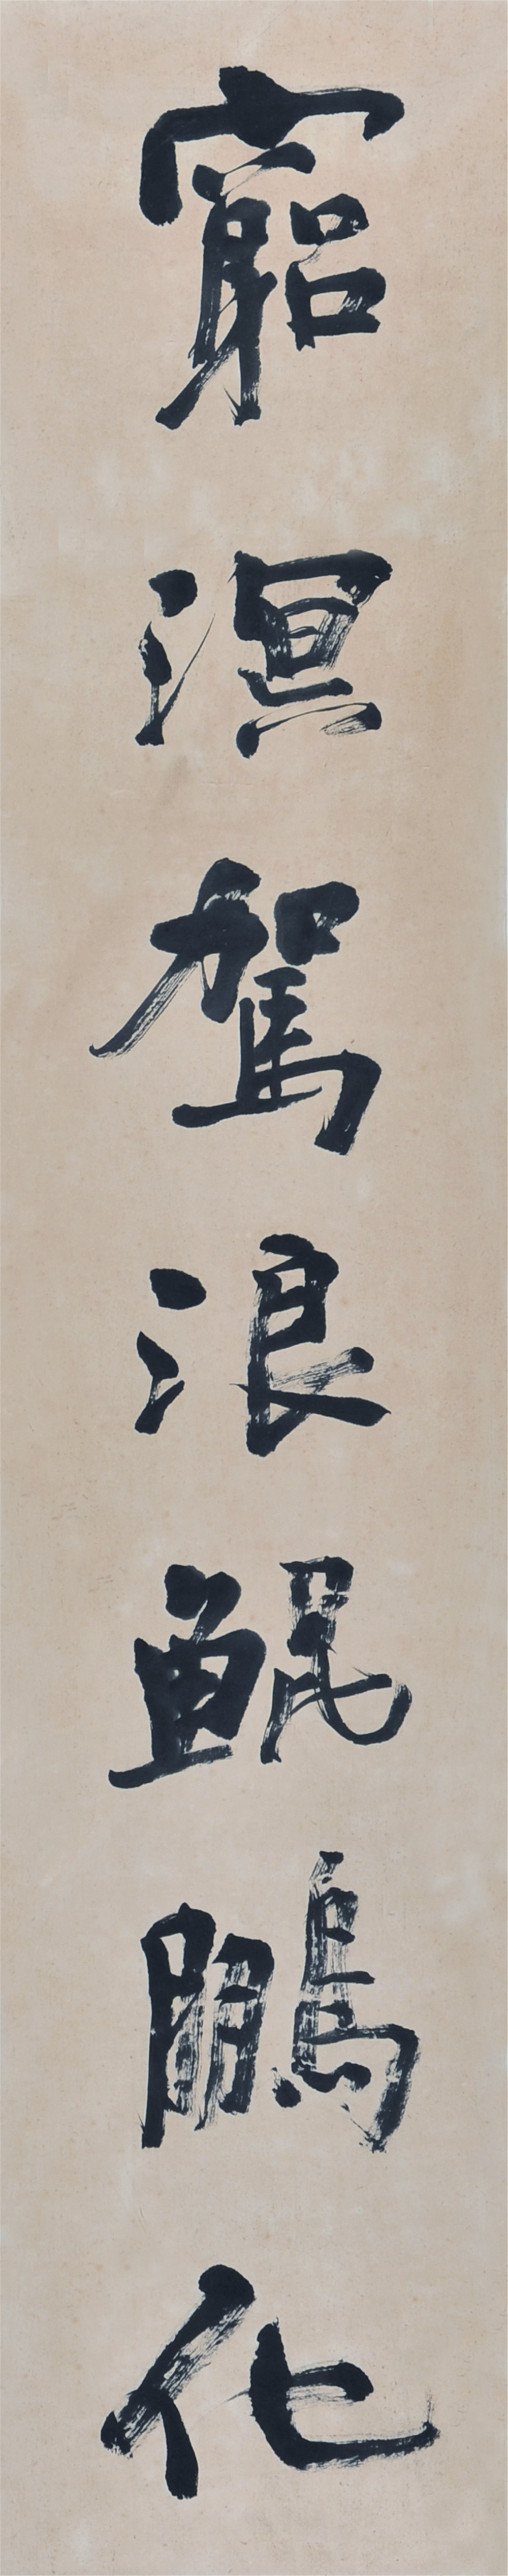 窮溟駕浪鯤鵬化